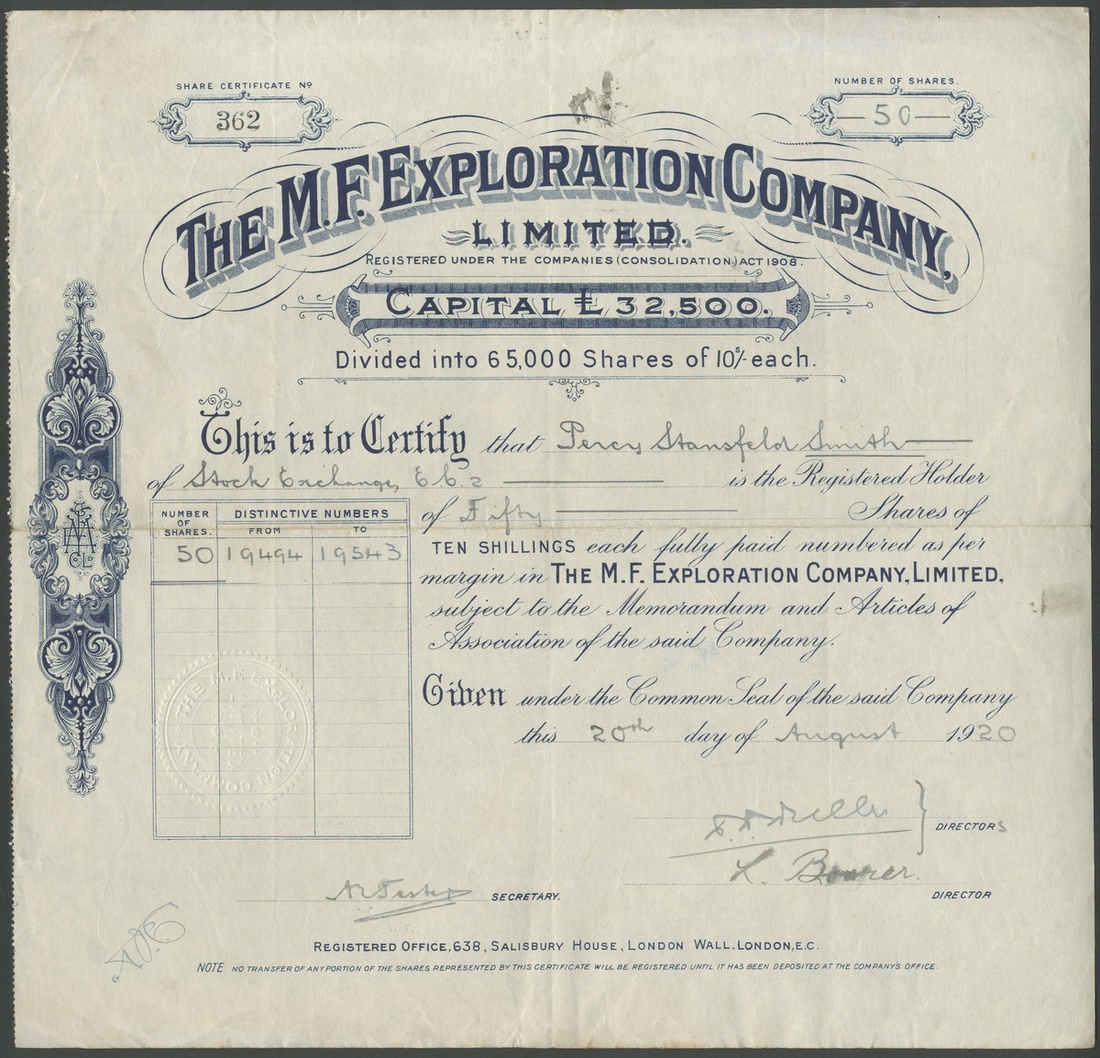 SHARE CERTIFICATE No
362
NUMBER OF SHARES.
—50—
THE M.F. EXPLORATION COMPANY,
LIMITED.
REGISTERED UNDER THE COMPANIES (CONSOLIDATION) ACT 1908.
CAPITAL £ 32,500.
Divided into 65,000 Shares of 10s/- each.
This is to Certify that Percy Stansfeld Smith
of Stock Exchange, E.C.2 is the Registered Holder
of Fifty Shares of
NUMBER OF SHARES. DISTINCTIVE NUMBERS
FROM TO
50 19494 19543
TEN SHILLINGS each fully paid numbered as per
margin in THE M.F. EXPLORATION COMPANY, LIMITED,
subject to the Memorandum and Articles of
Association of the said Company.
Given under the Common Seal of the said Company
this 20th day of August 1920
THE M.F. EXPLORATION COMPANY
DIRECTORS
L.
DIRECTOR
SECRETARY.
REGISTERED OFFICE, 638, SALISBURY HOUSE, LONDON WALL, LONDON, E.C.
NOTE NO TRANSFER OF ANY PORTION OF THE SHARES REPRESENTED BY THIS CERTIFICATE WILL BE REGISTERED UNTIL IT HAS BEEN DEPOSITED AT THE COMPANY'S OFFICE.